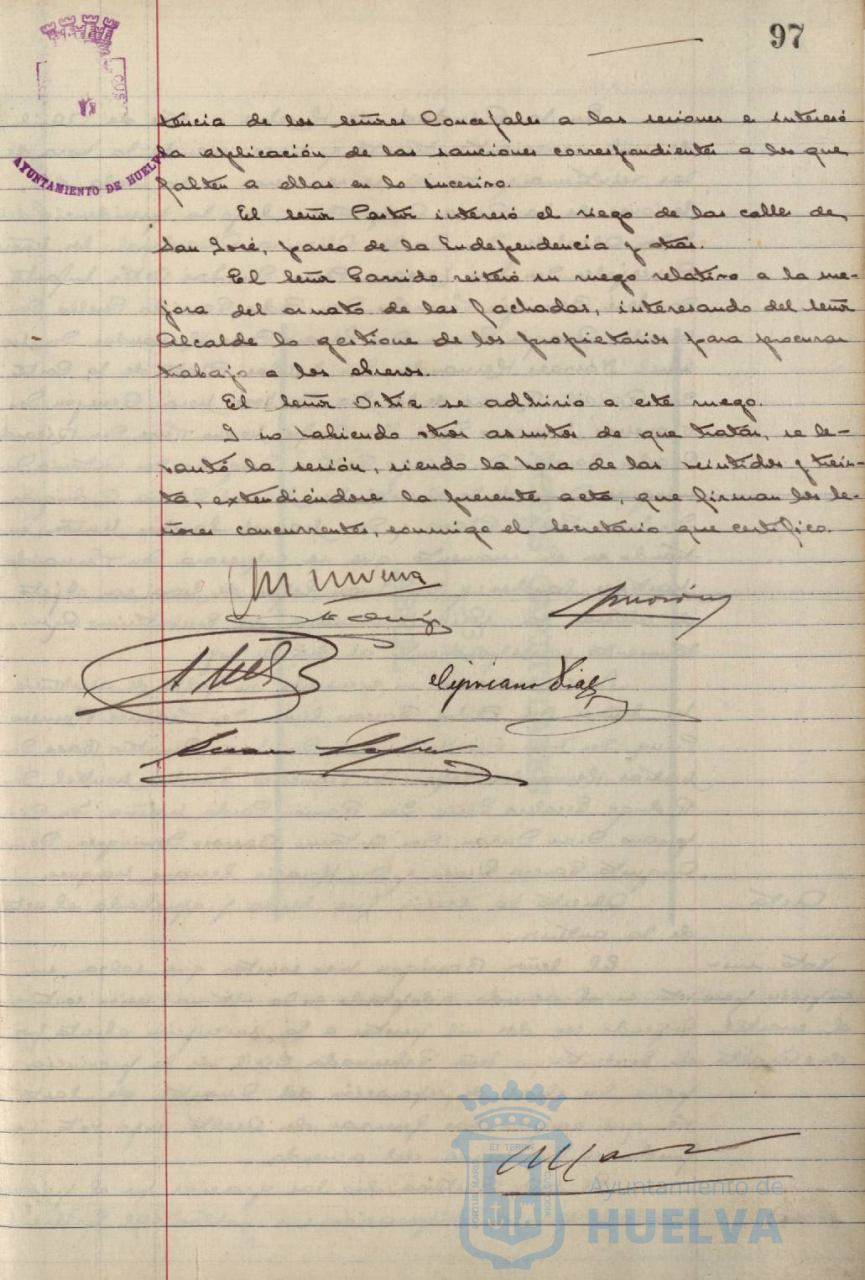 97
AYUNTAMIENTO DE HUELVA
tencia de los señores Concejales a las sesiones e interesó
la aplicación de las sanciones correspondientes a los que
falten a ellas en lo sucesivo.
El señor Pastor interesó el riego de las calle de
San José, paseo de la Independencia y otras.
El señor Garrido reiteró su ruego relativo a la me-
jora del ornato de las fachadas, interesando del señor
Alcalde lo gestione de los propietarios para procurar
trabajo a los obreros.
El señor Ortiz se adhirió a este ruego.
Y no habiendo otros asuntos de que tratar, se le-
vantó la sesión, siendo la hora de las veintidos y trein-
ta, extendiéndose la presente acta, que firman los se-
ñores concurrentes, conmigo el Secretario que certifico.
Cipriano Diaz
Ayuntamiento de
HUELVA